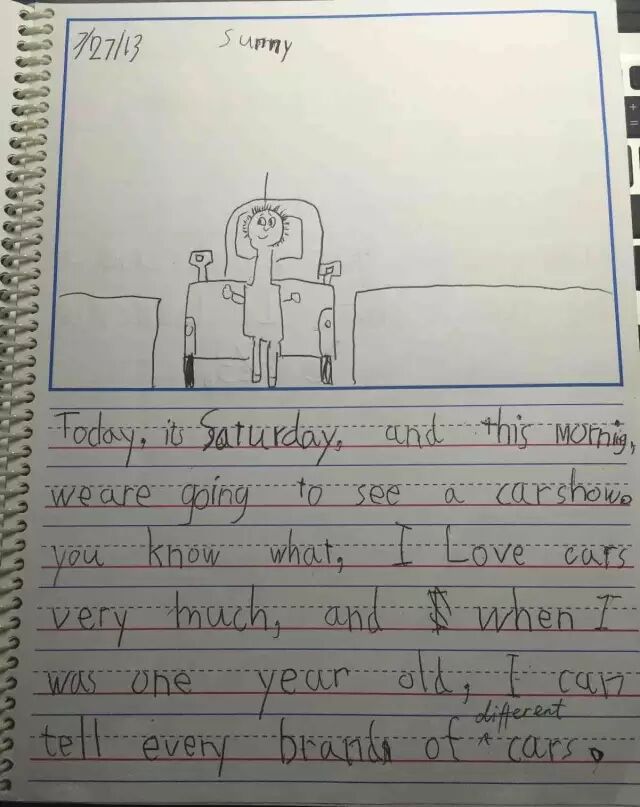 7/27/13 Sunny
Today, its Saturday, and this mornig,
we are going to see a carshow.
you know what, I Love cars
very much, and when I
was one year old, I can
different
tell every brands of ^ cars.